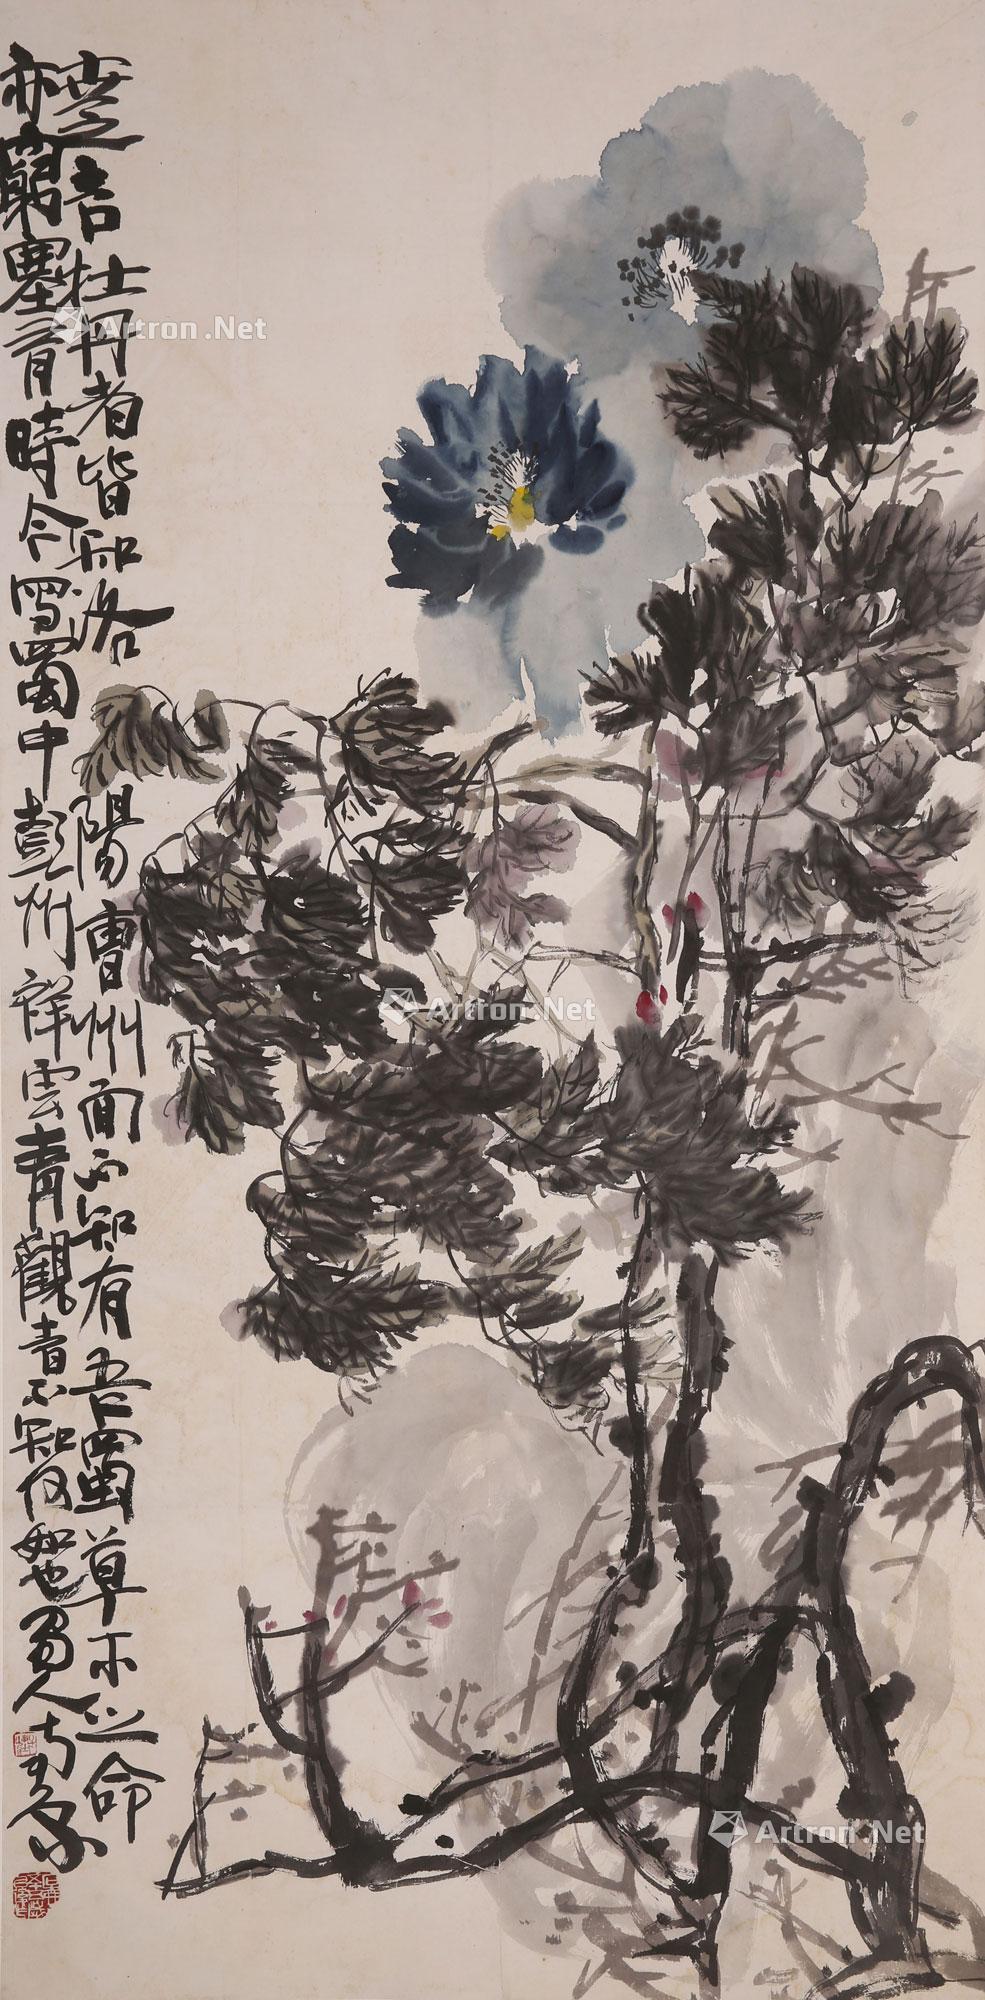 世之言牡丹者皆知洛陽曹州而不知有吾蜀草木之命
亦窮塞有時今寫蜀中彭州祥雲青觀者不知何如也蜀人
Artron.Net
Artron.Net
Artron.Net